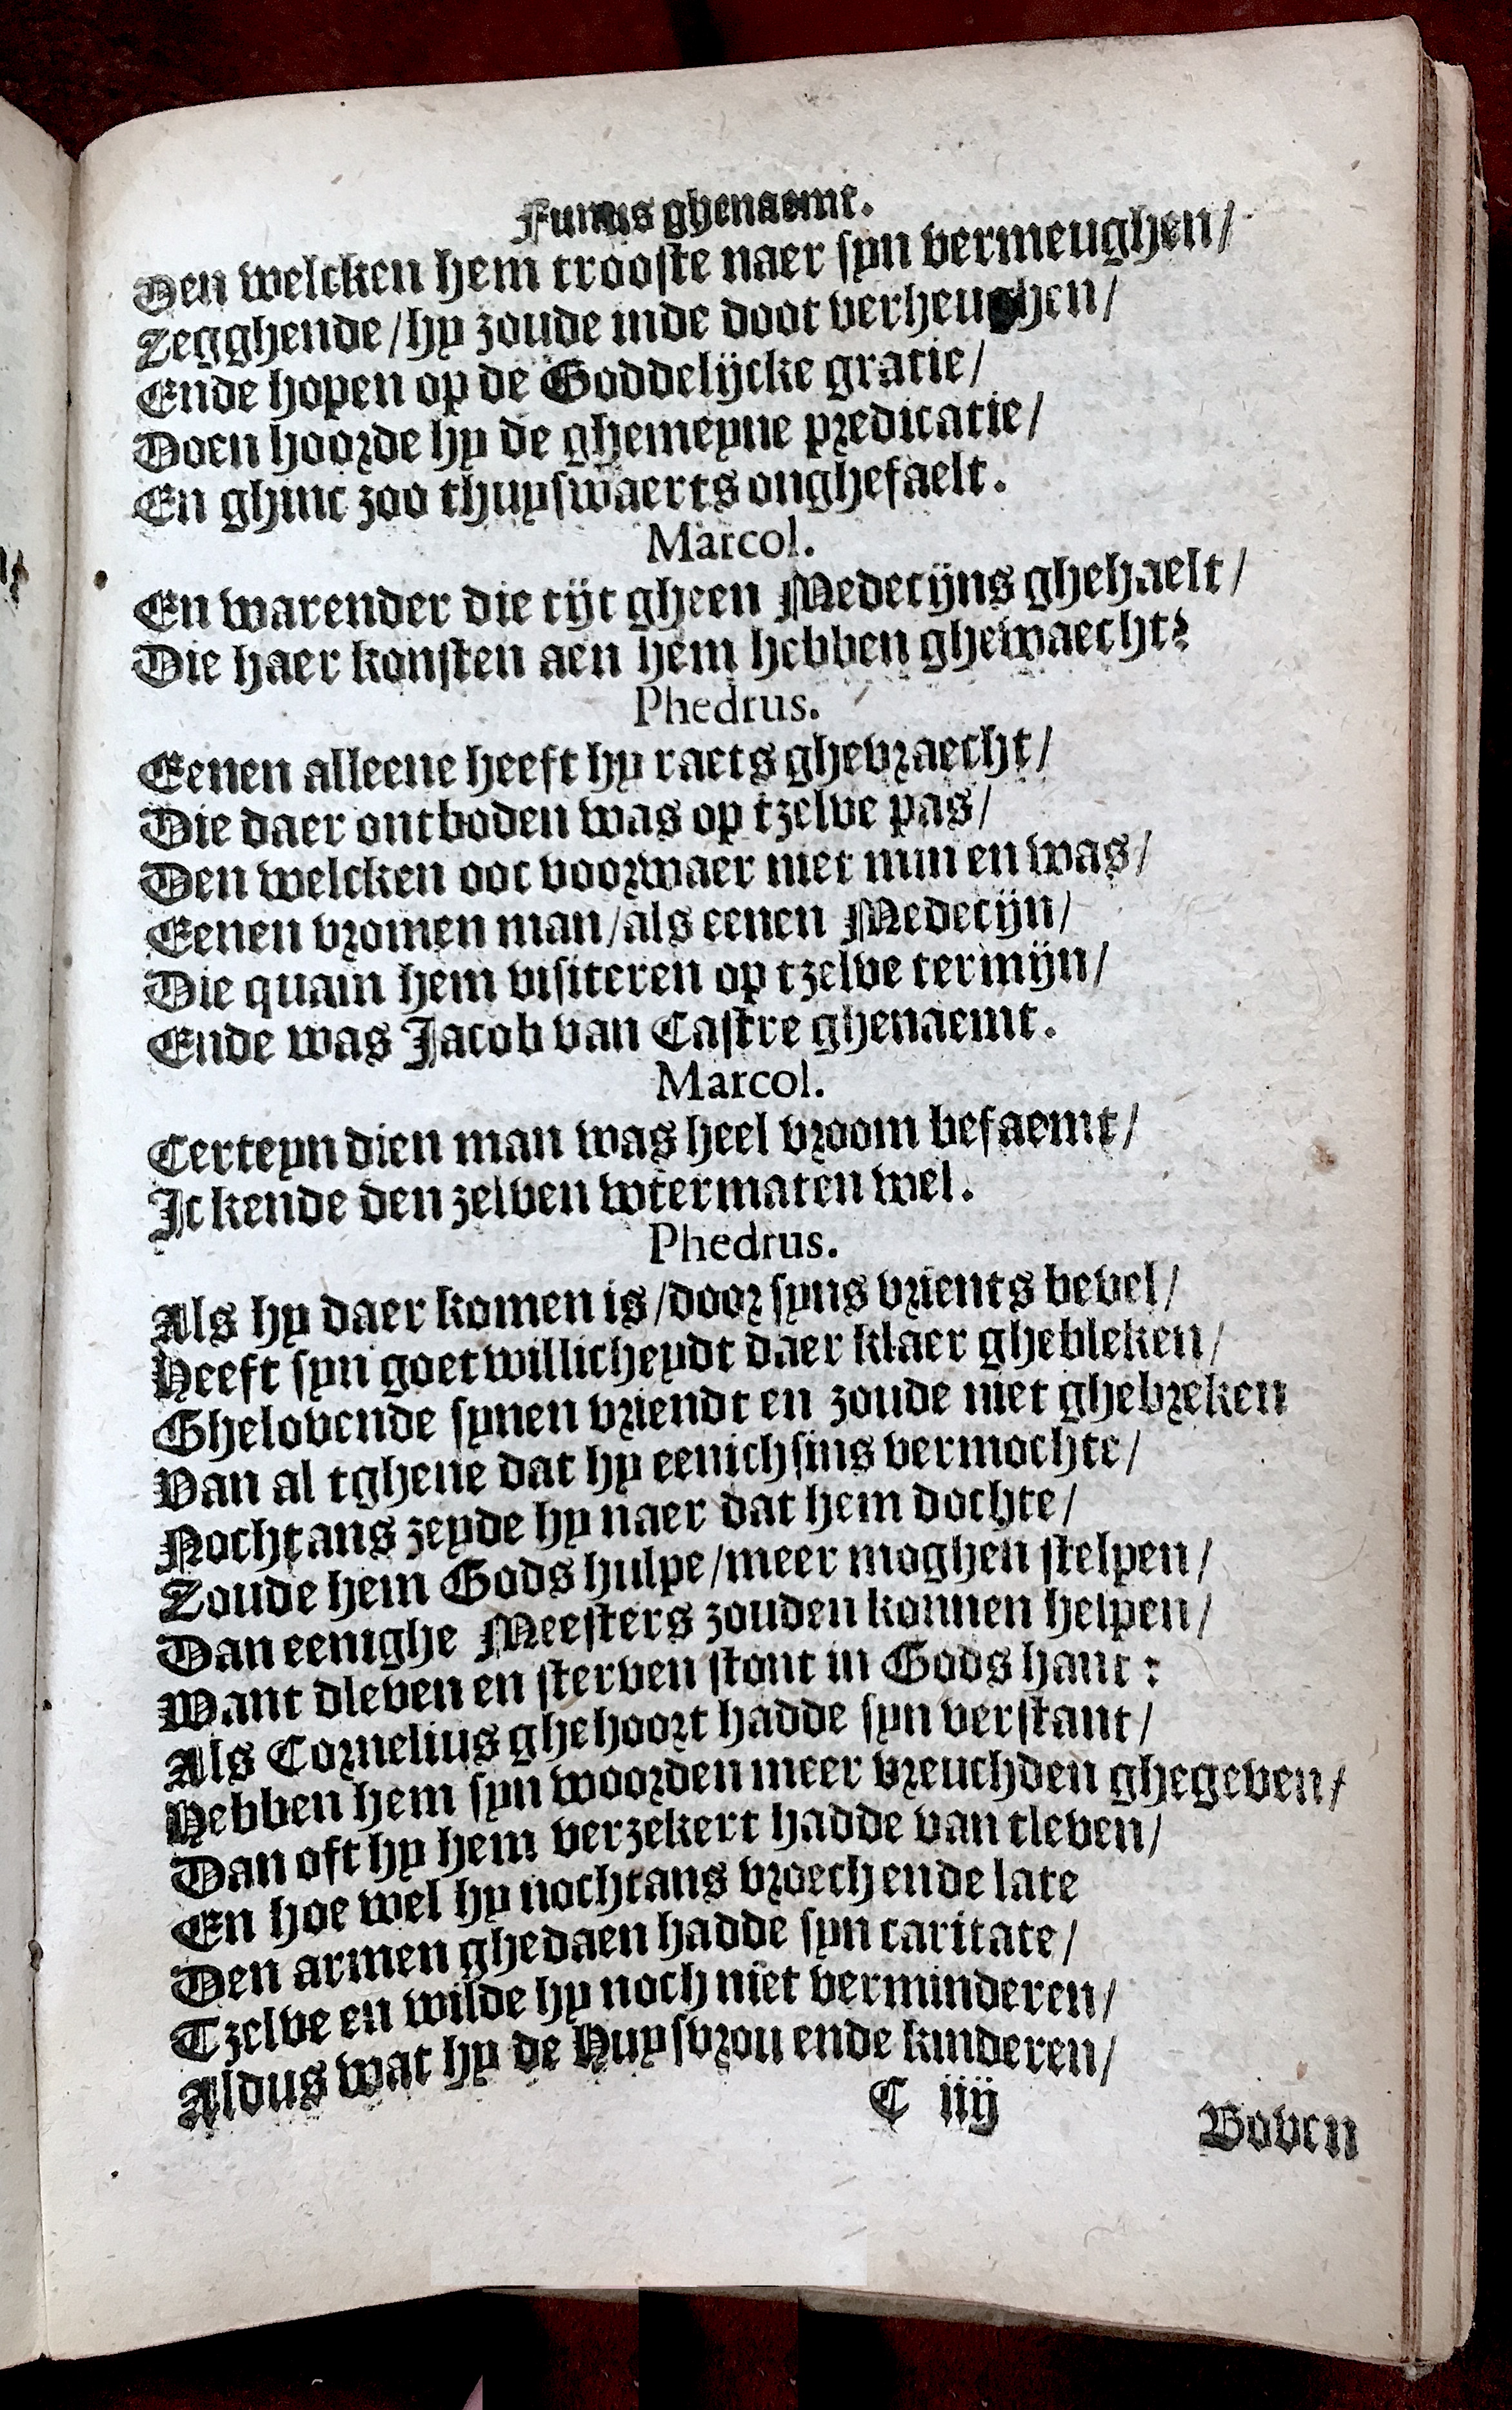 Funus ghenaemt.
Den welcken hem trooste naer syn vermeughen/
Zegghende/hy zoude inde doot verheughen/
Ende hopen op de Goddelijcke gratie/
Doen hoorde hy de ghemeyne predicatie/
En ghinc zoo thuyswaerts onghefaelt.
Marcol.
En warender die tijt gheen Medecijns ghehaelt/
Die haer konsten aen hem hebben ghewaecht?
Phedrus.
Eenen alleene heeft hy raets ghevraecht/
Die daer ontboden was op tzelve pas/
Den welcken ooc voorwaer niet min en was/
Eenen vromen man/als eenen Medecijn/
Die quam hem visiteren op tzelve termijn/
Ende was Jacob van Castre ghenaemt.
Marcol.
Certeyn dien man was heel vroom befaemt/
Ic kende den zelven wtermaten wel.
Phedrus.
Als hy daer komen is/door syns vrients bevel/
Heeft syn goetwillicheydt daer klaer ghebleken/
Ghelovende synen vriendt en zoude niet ghebreken
Van al tghene dat hy eenichsins vermochte/
Nochtans zeyde hy naer dat hem dochte/
Zoude hem Gods hulpe/meer moghen stelpen/
Dan eenighe Meesters zouden konnen helpen/
Want dleven en sterven stont in Gods hant:
Als Cornelius ghehoort hadde syn verstant/
Hebben hem syn woorden meer vreuchden ghegeven/
Dan oft hy hem verzekert hadde van tleven/
En hoe wel hy nochtans vroech ende late
Den armen ghedaen hadde syn caritate/
Tzelve en wilde hy noch niet verminderen/
Aldus wat hy de Huysvrou ende kinderen/
C iiij
Boven